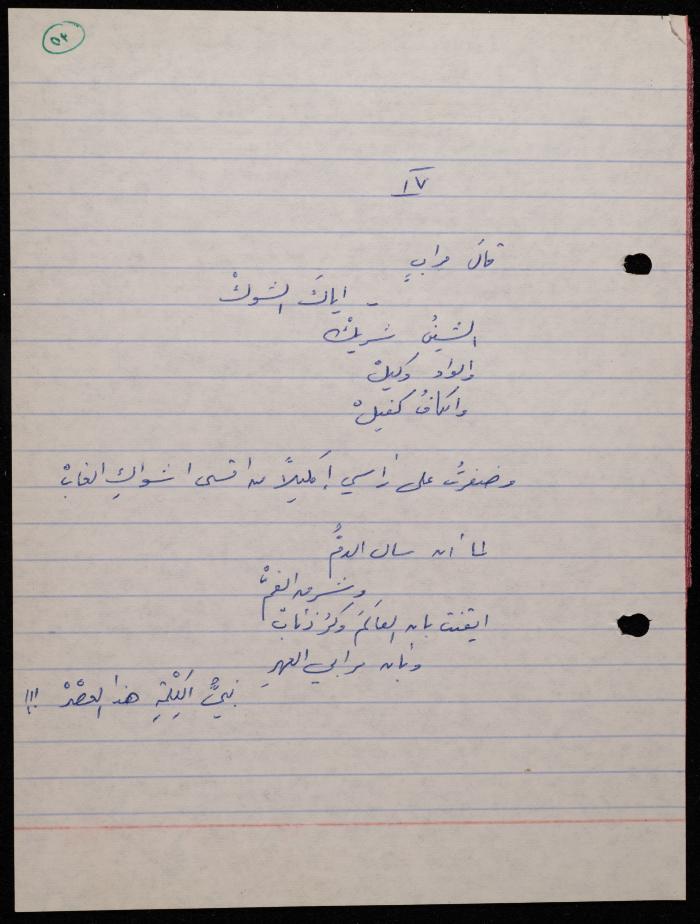 ٥٤
IV
قالَ مرابٍ
- اياكَ الشوكْ
الشينُ شريكْ
والواو وكيلْ
والكافُ كفيلْ
وضفرتُ على رأسي إكليلاً من اقسى اشواكِ الغابْ
لما أن سال الدمُّ
وشرق الفمْ
ايقنت بان العالمَ وكرُ ذئابْ
وبأن مرابي العهرِ
نبيُّ هذا العصْرْ !!!